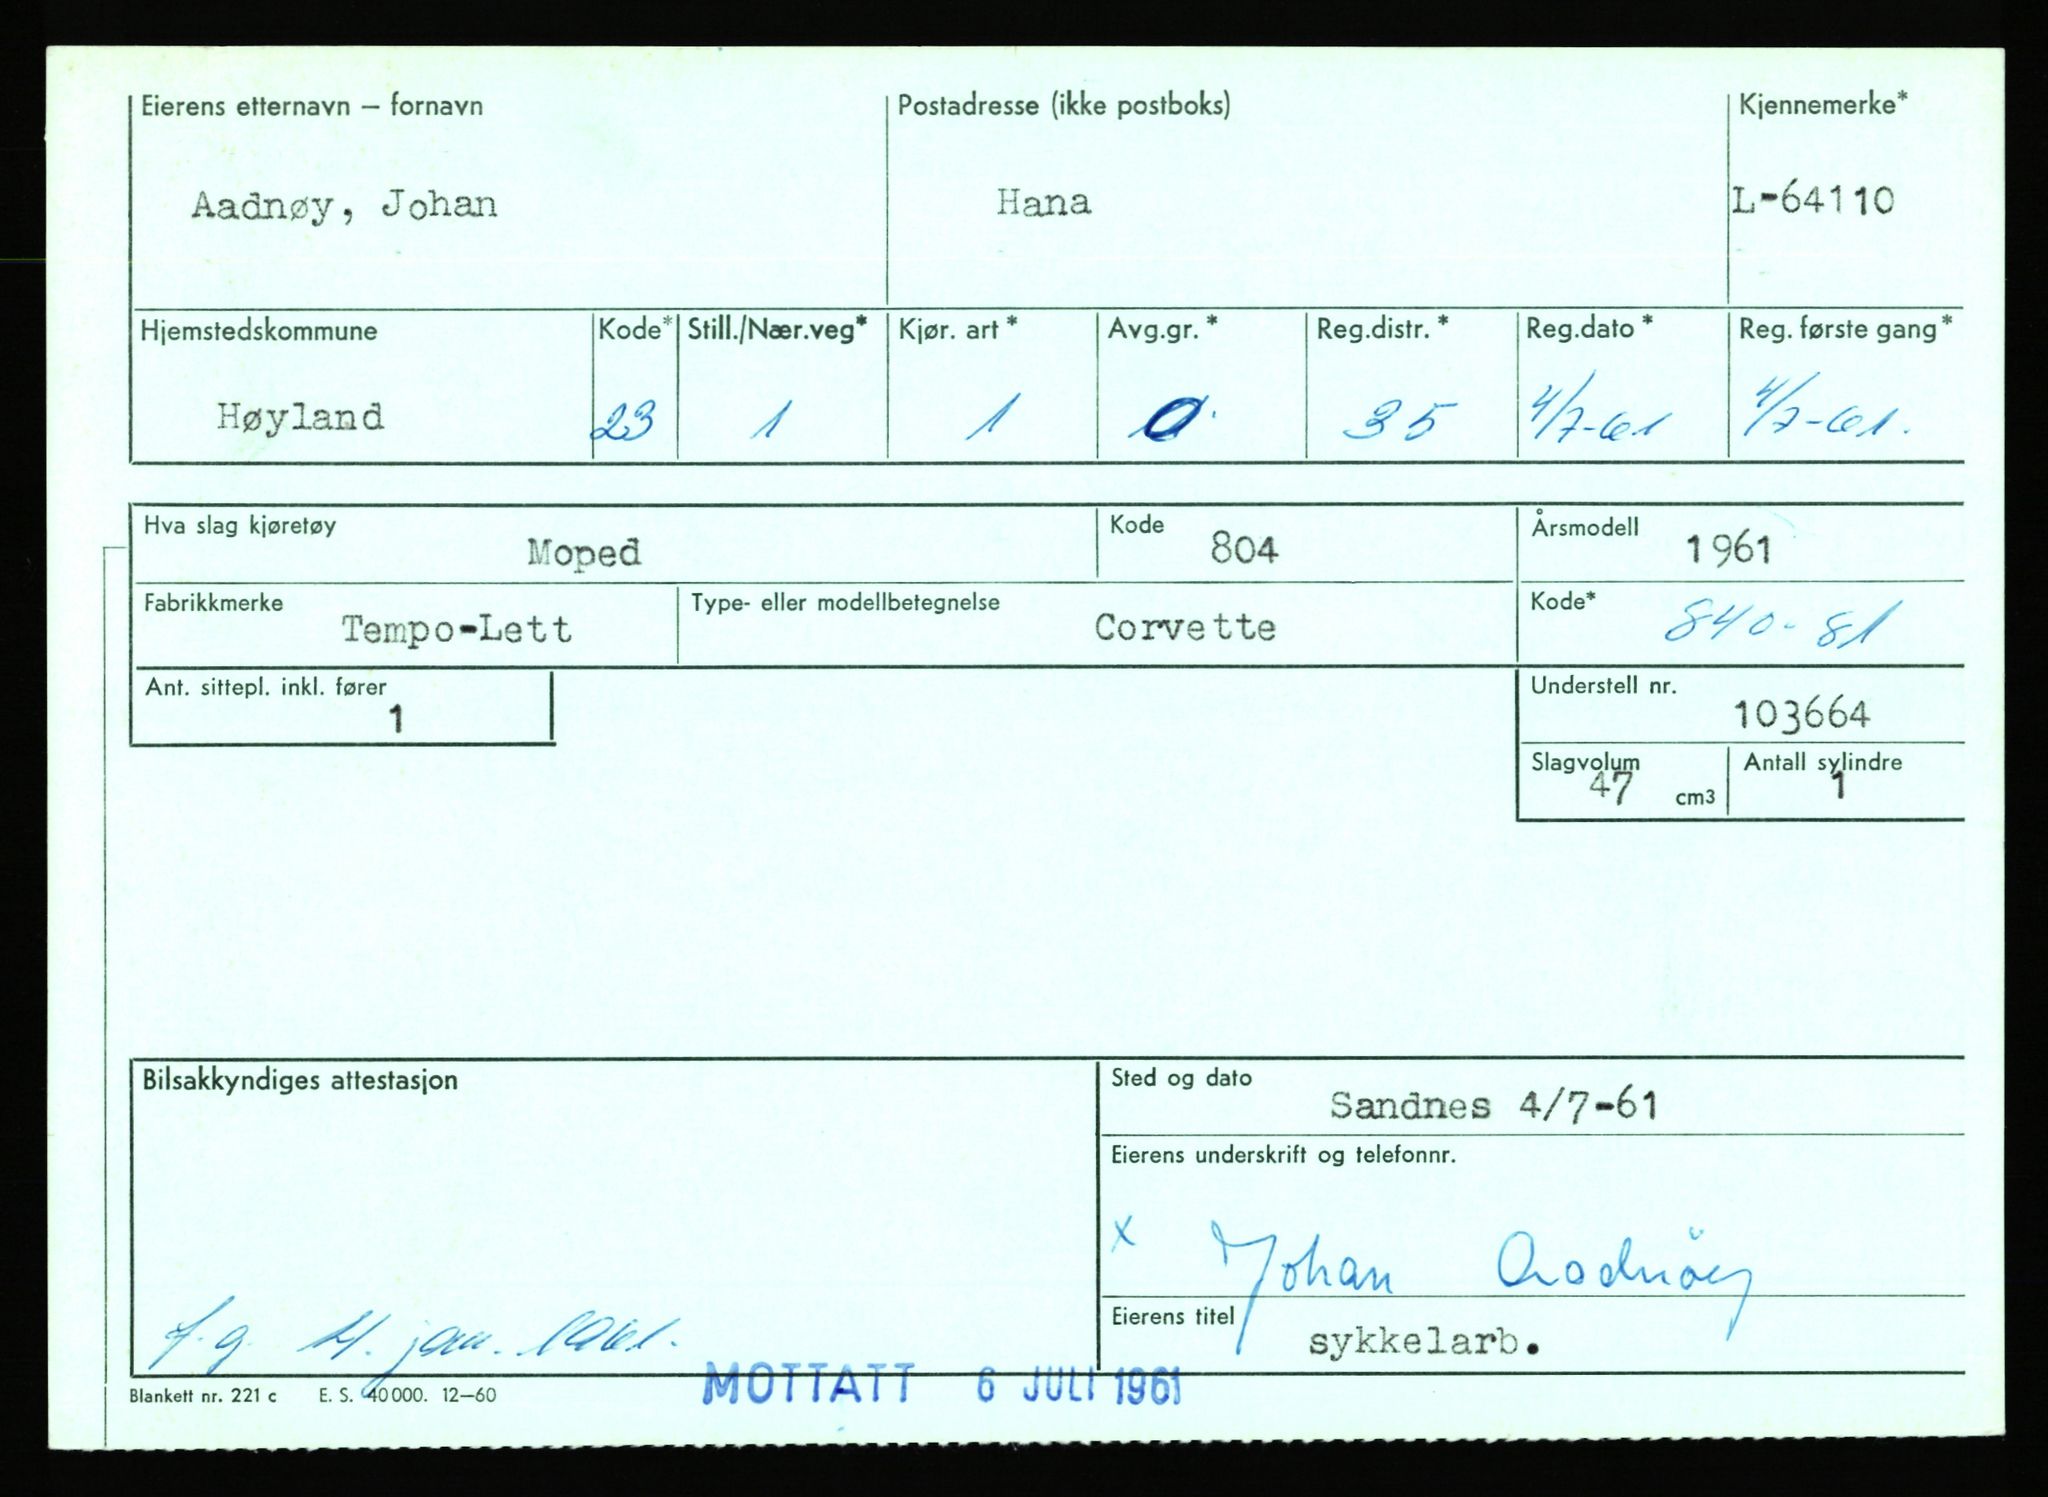 Eierens etternavn – fornavn Postadresse (ikke postboks) Kjennemerke*
Aadnøy, Johan Hana L-64110
Hjemstedskommune Kode* Still./Nær.veg* Kjør. art* Avg.gr.* Reg.distr.* Reg.dato* Reg. første gang*
Høyland 23 1 1 0 35 4/7-61 4/7-61.
Hva slag kjøretøy Kode Årsmodell
Moped 804 1961
Fabrikkmerke Type- eller modellbetegnelse Kode*
Tempo-Lett Corvette 840-81
Ant. sittepl. inkl. fører Understell nr.
1 103664
Slagvolum Antall sylindre
47 cm3 1
Bilsakkyndiges attestasjon Sted og dato
Sandnes 4/7-61
Eierens underskrift og telefonnr.
x Johan Aadnöy
Eierens titel
sykkelarb.
f.g. 21. jan. 1961.
MOTTATT 6 JULI 1961
Blankett nr. 221 c E. S. 40 000. 12–60